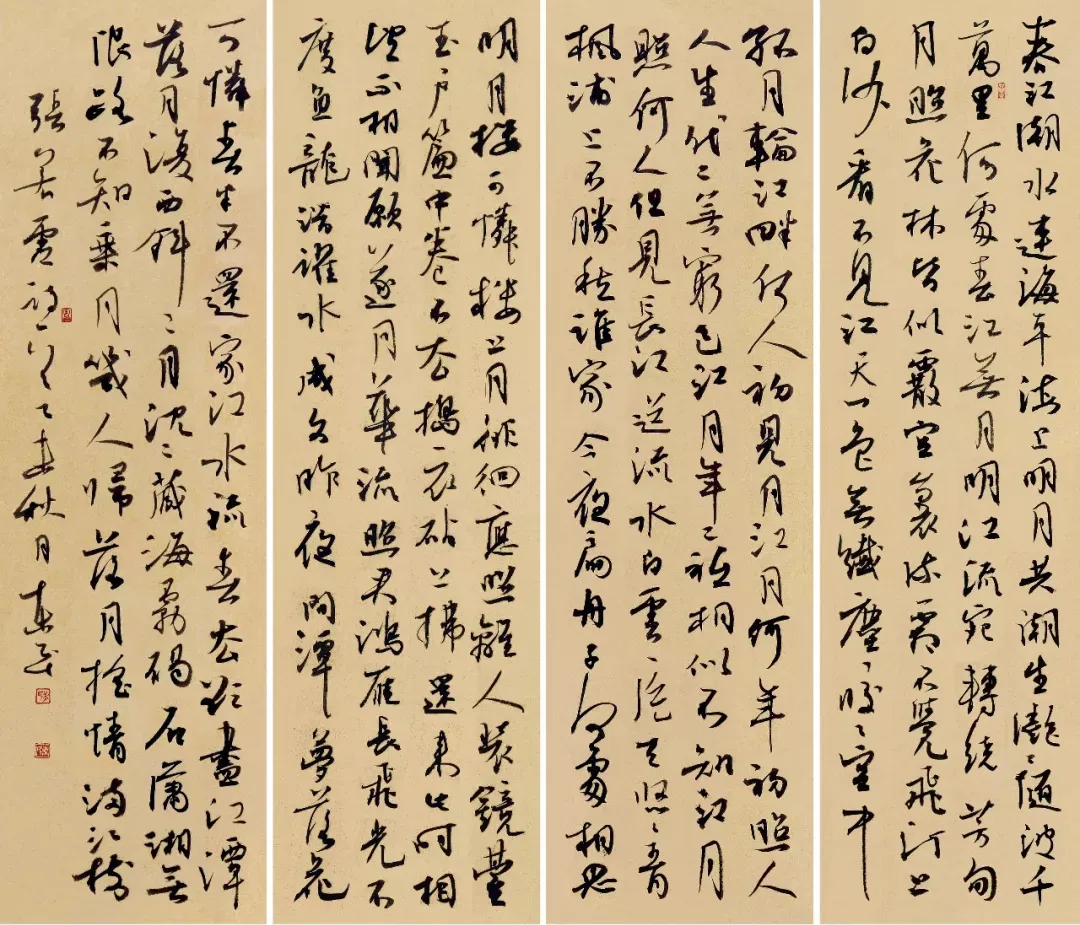 春江潮水連海平海上明月共潮生灩々隨波千
萬里何處春江無月明江流宛轉繞芳甸
月照花林皆似霰空裏流霜不覺飛汀上
白沙看不見江天一色無纖塵皎々空中
孤月輪江畔何人初見月江月何年初照人
人生代々無窮已江月年々祗相似不知江月
照何人但見長江送流水白雲一片去悠々青
楓浦上不勝愁誰家今夜扁舟子何處相思
明月樓可憐樓上月徘徊應照離人妝鏡臺
玉戶簾中卷不去搗衣砧上拂還來此時相
望不相聞願逐月華流照君鴻雁長飛光不
度魚龍潛躍水成文昨夜閒潭夢落花
可憐春半不還家江水流春去欲盡江潭
落月復西斜々月沈々藏海霧碣石瀟湘無
限路不知乘月幾人歸落月搖情滿江樹
張若虛詩一首秋月